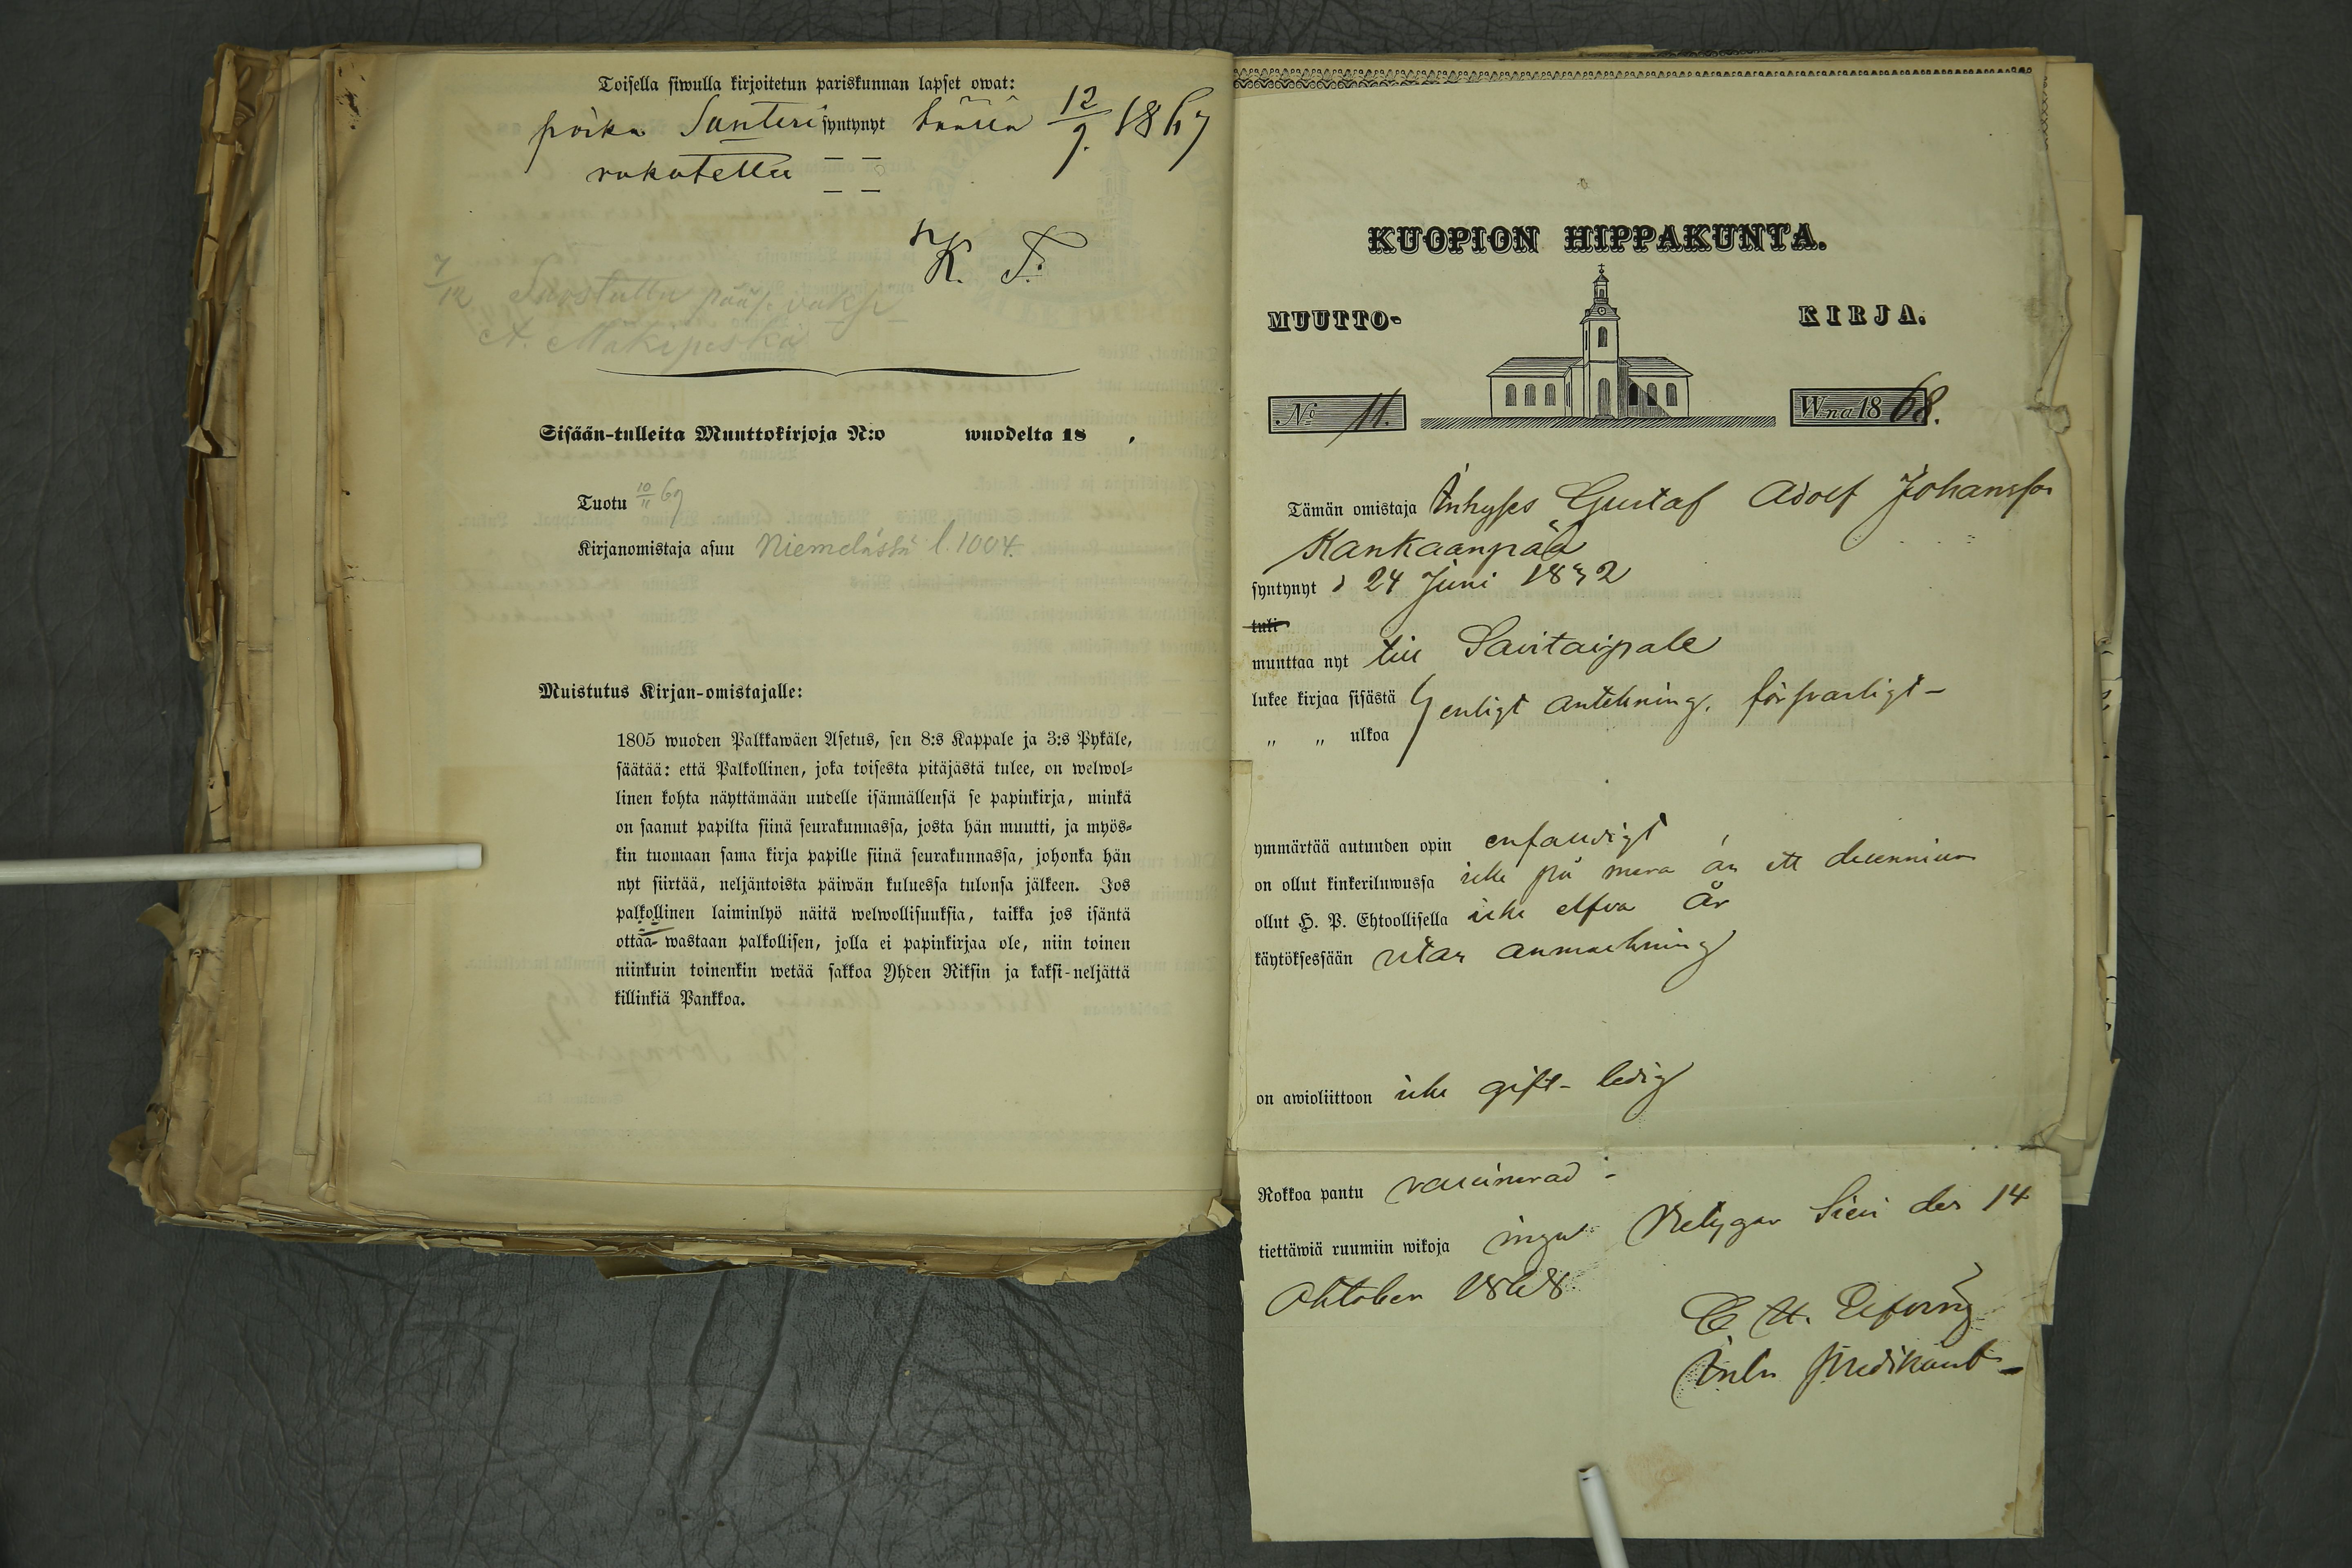 Toisella siwulla kirjoitetun pariskunnan lapset owat:
poika Santeri syntynyt täällä 12/9. 1867
rokotettu — —
— —
K. F.
7/12
A. Mäkipeska
Sisään-tulleita Muuttokirjoja N:o wuodelta 18 .
Tuotu 10/11 69
Kirjanomistaja asuu Niemelässä l. 1004.
Muistutus Kirjan-omistajalle:
1805 wuoden Palkkawäen Asetus, sen 8:s Kappale ja 3:s Pykäle,
säätää: että Palkollinen, joka toisesta pitäjästä tulee, on welwol-
linen kohta näyttämään uudelle isännällensä se papinkirja, minkä
on saanut papilta siinä seurakunnassa, josta hän muutti, ja myös-
kin tuomaan sama kirja papille siinä seurakunnassa, johonka hän
nyt siirtää, neljäntoista päiwän kuluessa tulonsa jälkeen. Jos
palkollinen laiminlyö näitä welwollisuuksia, taikka jos isäntä
ottaa wastaan palkollisen, jolla ei papinkirjaa ole, niin toinen
niinkuin toinenkin wetää sakkoa Yhden Riksin ja kaksi-neljättä
killinkiä Pankkoa.
KUOPION HIPPAKUNTA.
MUUTTO- KIRJA.
No 11. Wna 1868.
Tämän omistaja Inhyses Gustaf Adolf Johansson
Kankaanpää
syntynyt d 24 Juni 1832
tuli
muuttaa nyt till Savitaipale
lukee kirjaa sisästä } enligt anteckning. försvarligt –
„ „ ulkoa
ymmärtää autuuden opin enfaldigt
on ollut kinkeriluwussa icke på mera än ett decennium
ollut H. P. Ehtoollisella icke elfva År
käytöksessään utan anmärkning
on awioliittoon icke gift - ledig
Rokkoa pantu vaccinerad -
tiettäwiä ruumiin wikoja inga. Betygar Sievi den 14
Oktober 1868